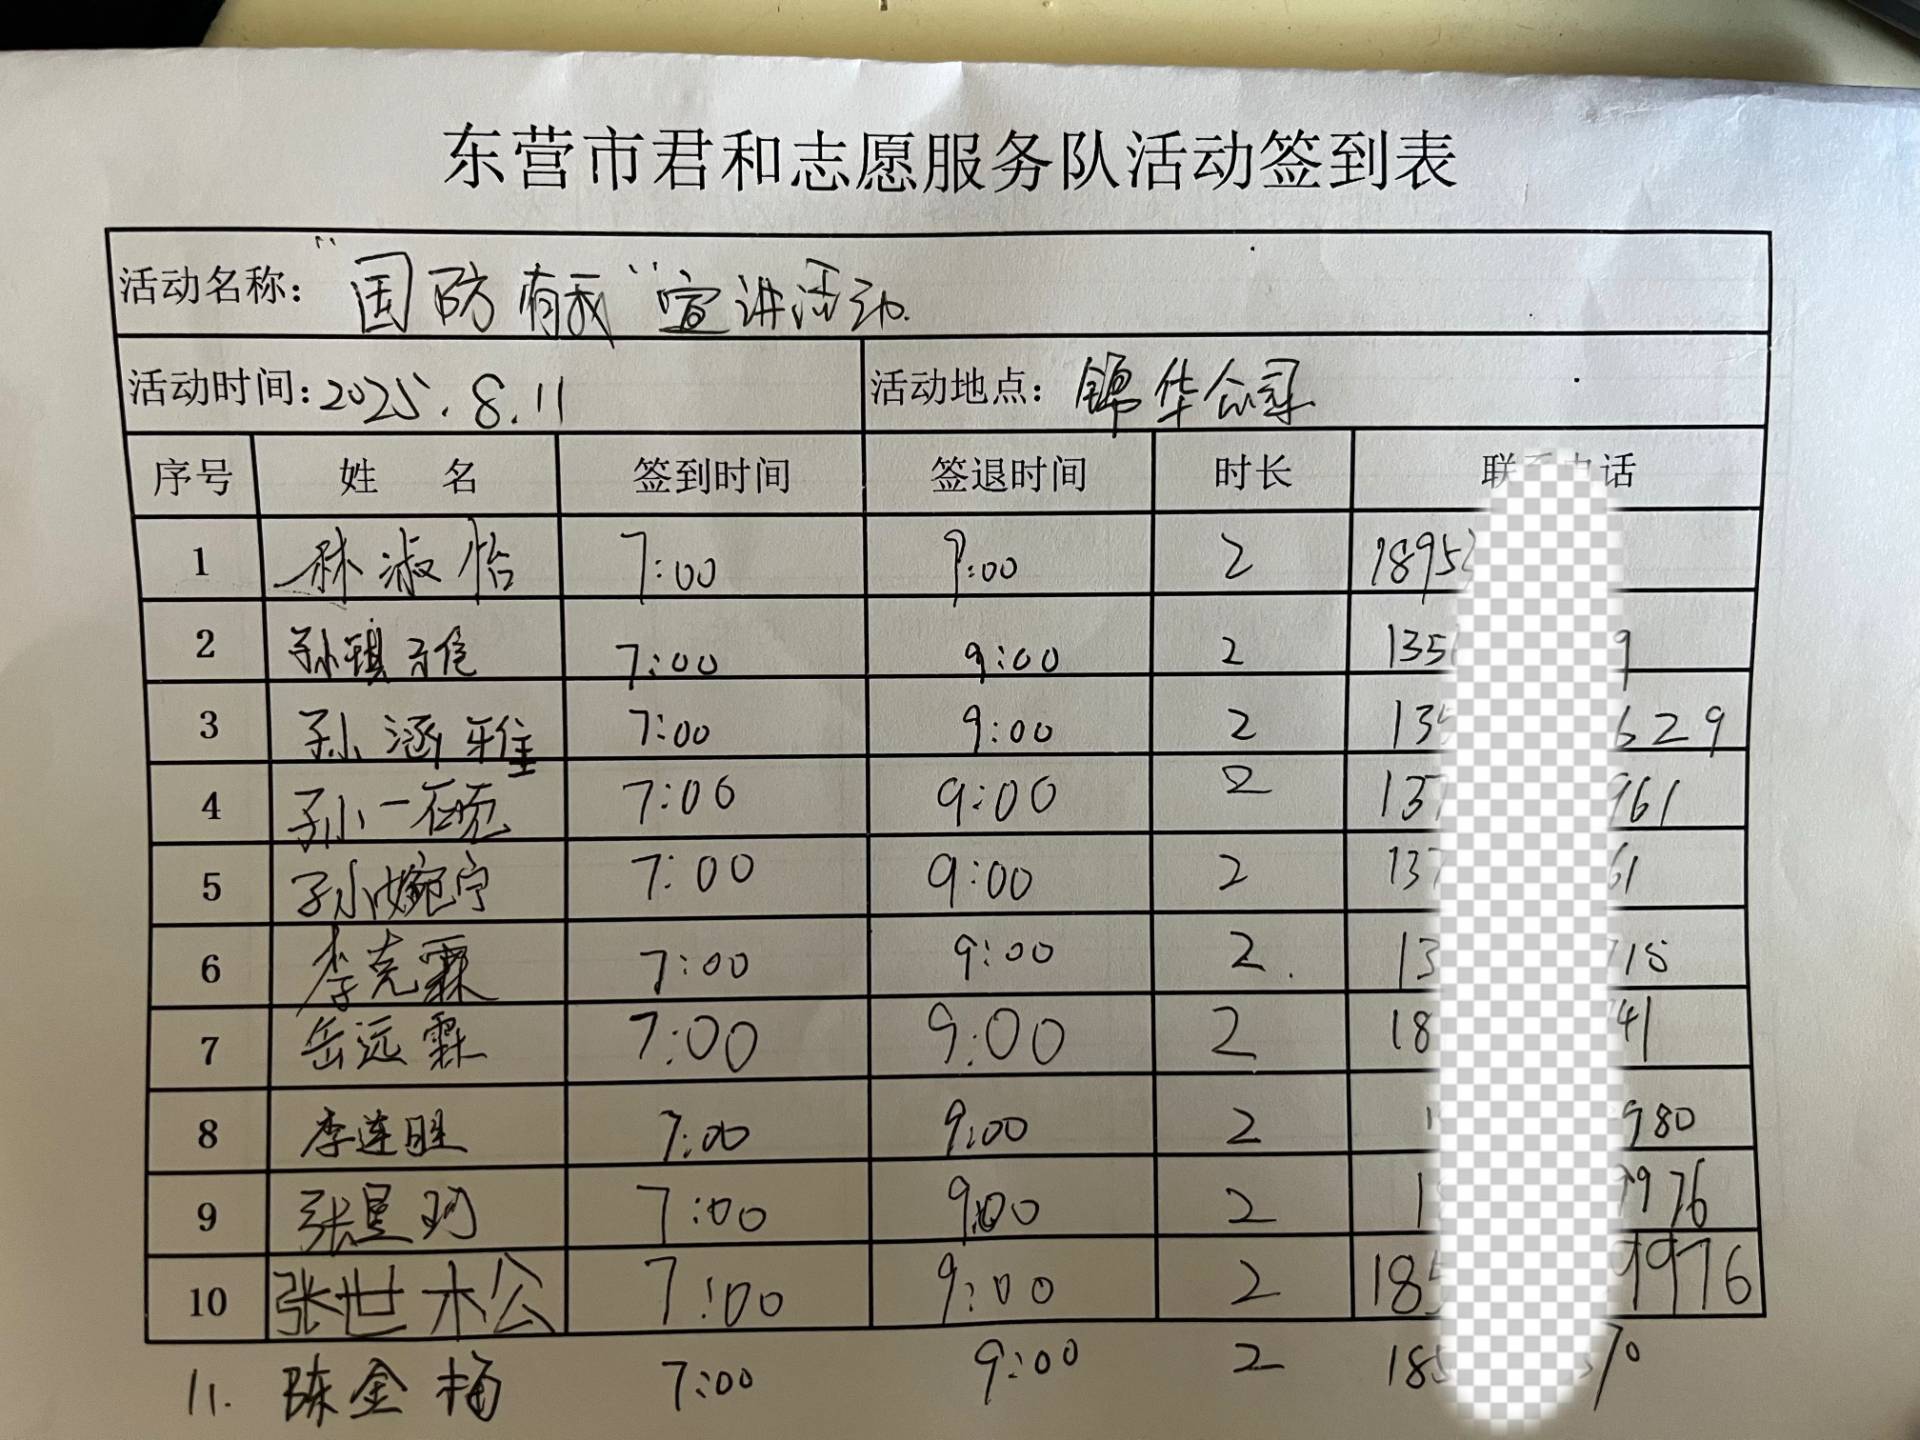 东营市君和志愿服务队活动签到表
活动名称：“国防有我”宣讲活动.
活动时间：2025.8.11 活动地点：锦华公司
序号 姓 名 签到时间 签退时间 时长 联 话
1 林淑怡 7:00 9:00 2 1895
2 孙琪 7:00 9:00 2 135 9
3 孙涵雅 7:00 9:00 2 13 629
4 孙一 7:00 9:00 2 137 961
5 孙婉宁 7:00 9:00 2 137 61
6 李克霖 7:00 9:00 2. 13 715
7 岳远霖 7:00 9:00 2 18 41
8 李连胜 7:00 9:00 2 980
9 张昱 7:00 9:00 2 1 976
10 张世松 7:00 9:00 2 185 9976
11. 陈金梅 7:00 9:00 2 185 70